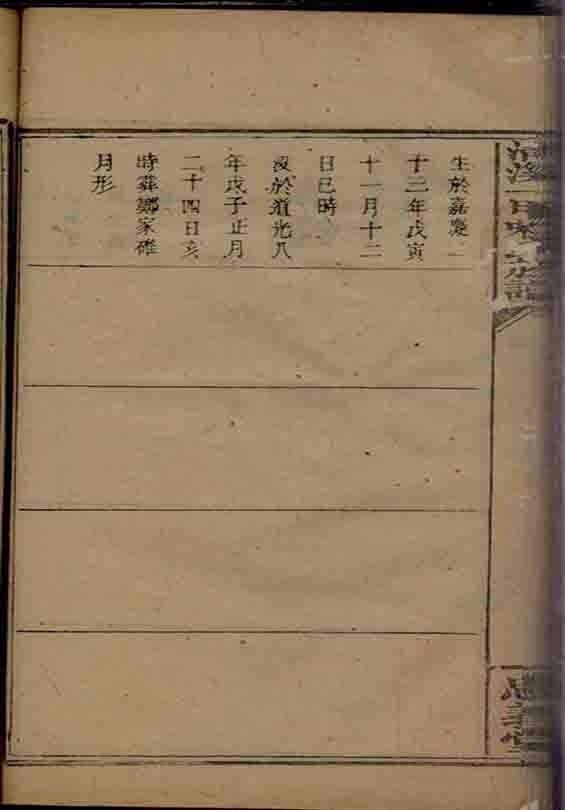 生於嘉慶二
十三年戊寅
十一月十二
日巳時
沒於道光八
年戊子正月
二十四日亥
時葬家碓
月形